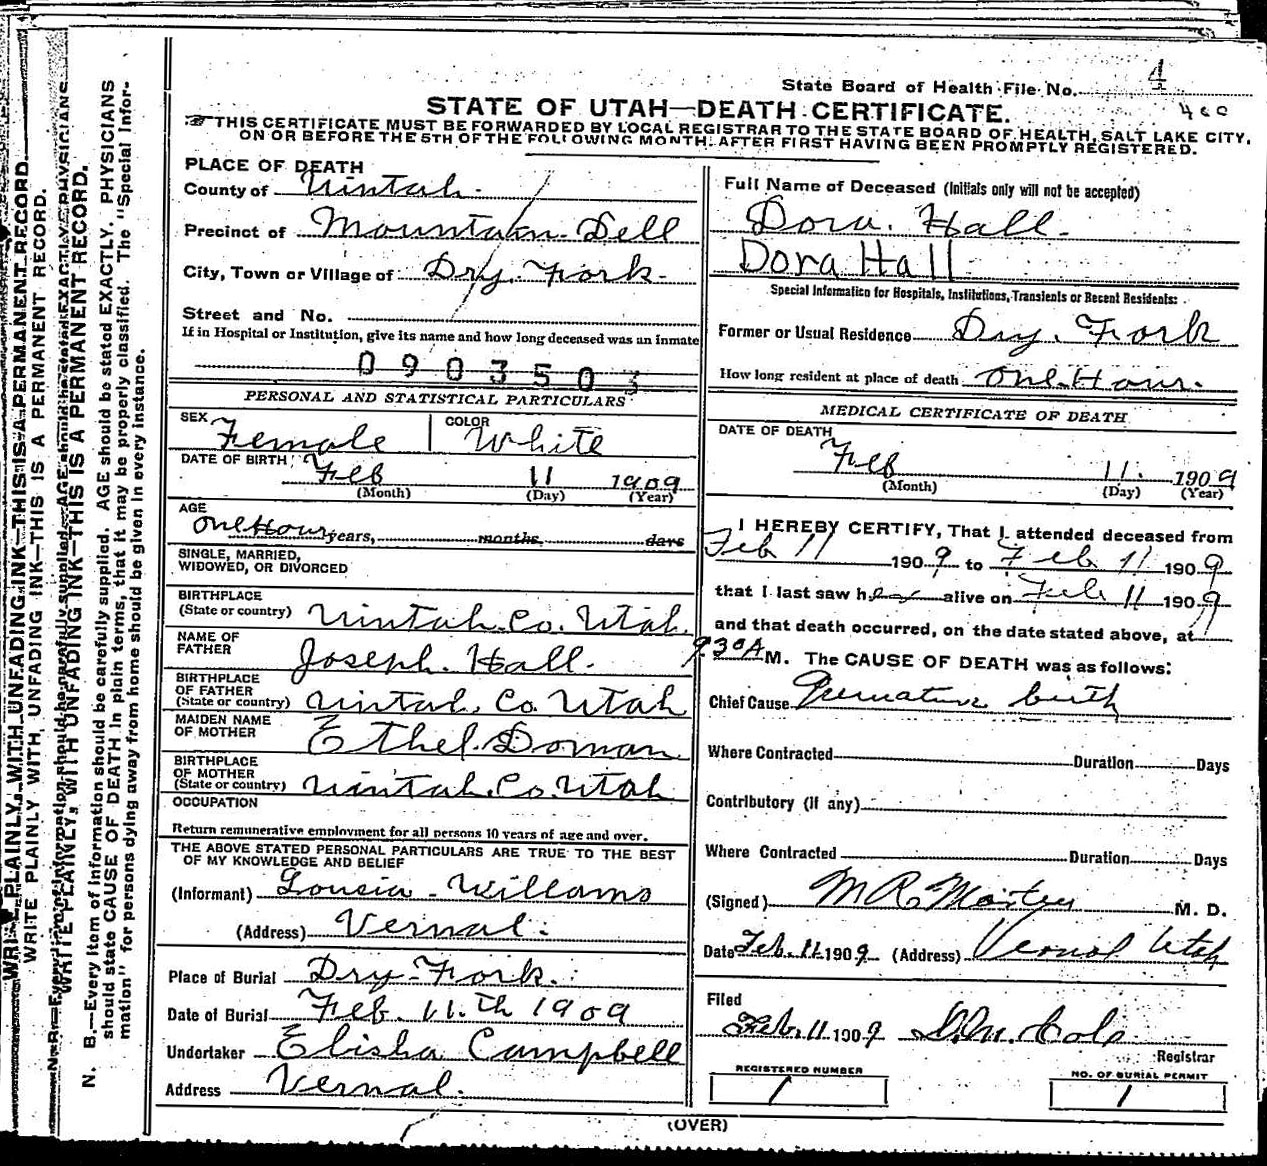 State Board of Health File No. 4
400
STATE OF UTAH—DEATH CERTIFICATE.
THIS CERTIFICATE MUST BE FORWARDED BY LOCAL REGISTRAR TO THE STATE BOARD OF HEALTH, SALT LAKE CITY,
ON OR BEFORE THE 5TH OF THE FOLLOWING MONTH, AFTER FIRST HAVING BEEN PROMPTLY REGISTERED.
PLACE OF DEATH
County of Uintah.
Precinct of Mountain Dell
City, Town or Village of Dry Fork.
Street and No.
If in Hospital or Institution, give its name and how long deceased was an inmate
0903503
PERSONAL AND STATISTICAL PARTICULARS
SEX Female COLOR White
DATE OF BIRTH Feb 11 1909
(Month) (Day) (Year)
AGE
One Hour years, months, days
SINGLE, MARRIED,
WIDOWED, OR DIVORCED
BIRTHPLACE
(State or country) Uintah Co. Utah.
NAME OF
FATHER Joseph Hall.
BIRTHPLACE
OF FATHER
(State or country) Uintah Co. Utah
MAIDEN NAME
OF MOTHER Ethel Doman
BIRTHPLACE
OF MOTHER
(State or country) Uintah Co. Utah
OCCUPATION
Return remunerative employment for all persons 10 years of age and over.
THE ABOVE STATED PERSONAL PARTICULARS ARE TRUE TO THE BEST
OF MY KNOWLEDGE AND BELIEF
(Informant) Lousia Williams
(Address) Vernal.
Place of Burial Dry Fork.
Date of Burial Feb. 11.th 1909
Undertaker Elisha Campbell
Address Vernal.
Full Name of Deceased (Initials only will not be accepted)
Dora. Hall.
Dora Hall
Special Information for Hospitals, Institutions, Transients or Recent Residents:
Former or Usual Residence Dry. Fork
How long resident at place of death One Hour.
MEDICAL CERTIFICATE OF DEATH
DATE OF DEATH
Feb 11. 1909
(Month) (Day) (Year)
I HEREBY CERTIFY, That I attended deceased from
Feb 11 1909 to Feb 11 1909
that I last saw her alive on Feb 11 1909
and that death occurred, on the date stated above, at
9.30A M. The CAUSE OF DEATH was as follows:
Chief Cause Premature birth
Where Contracted Duration Days
Contributory (if any)
Where Contracted Duration Days
(Signed) M. D.
Date Feb. 11 1909 (Address) Vernal Utah
Filed
Feb. 11 1909 Cole
Registrar
REGISTERED NUMBER
1
NO. OF BURIAL PERMIT
1
(OVER)
WRITE PLAINLY, WITH UNFADING INK—THIS IS A PERMANENT RECORD.
N. B.—Every item of information should be carefully supplied. AGE should be stated EXACTLY. PHYSICIANS
should state CAUSE OF DEATH in plain terms, that it may be properly classified. The "Special Infor-
mation" for persons dying away from home should be given in every instance.